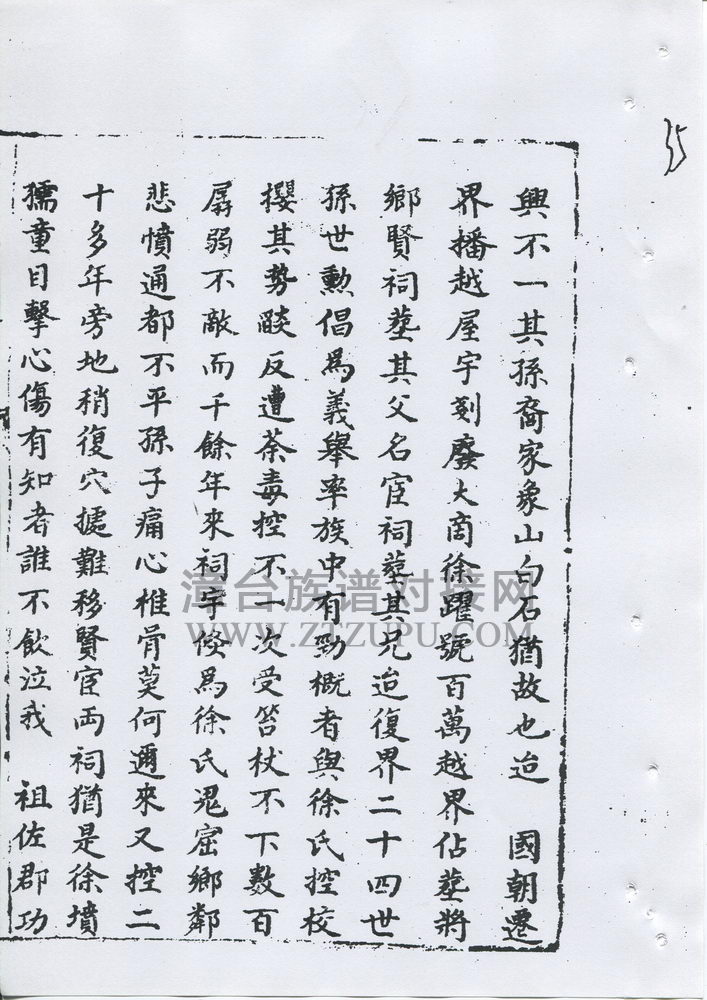 35
興不一其孫裔家象山白石猶故也迨　國朝遷
界播越屋宇剗廢大商徐躍號百萬越界佔塟將
鄉賢祠塟其父名宦祠塟其兄迨復界二十四世
孫世勳倡為義舉率族中有勁概者與徐氏控校
攖其勢燄反遭荼毒控不一次受笞杖不下數百
孱弱不敵而千餘年來祠宇倐為徐氏鬼窟鄉鄰
悲憤通都不平孫子痛心椎骨莫何邇來又控二
十多年旁地稍復穴據難移賢宦両祠猶是徐墳
孺童目擊心傷有知者誰不飲泣我　祖佐郡功
漳台族谱对接网
WWW.ZTZUPU.COM